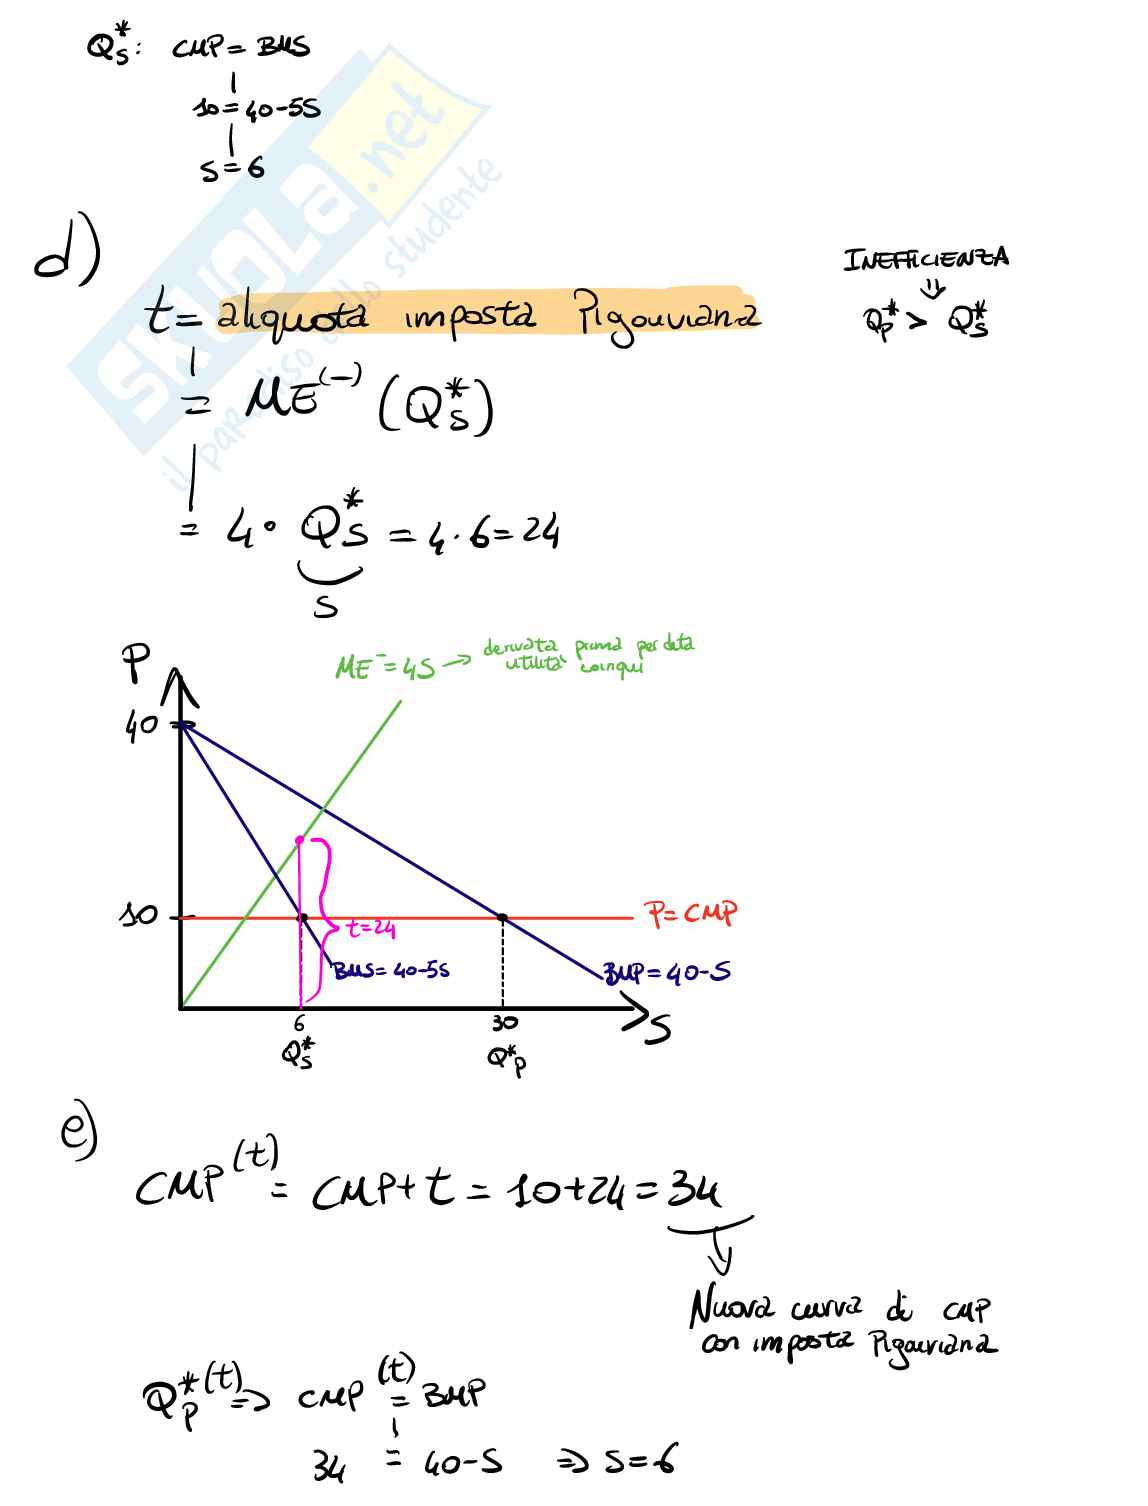 Q*s: CMP = BMS
10 = 40-5S
S = 6
SKUOLA.net
il paradiso dello studente
d)
INEFFICIENZA
t = aliquota imposta Pigouviana
Q*p > Q*s
= ME(-) (Q*s)
= 4 · Q*s = 4 · 6 = 24
S
P
ME- = 4S → derivata prima per data
utilità coinqui
40
10
P = CMP
t = 24
BMS = 40-5S
BMP = 40-S
6
30
S
Q*s
Q*p
e)
CMP(t) = CMP + t = 10 + 24 = 34
Nuova curva di CMP
con imposta Pigouviana
Q*p(t) ⇒ CMP(t) = BMP
34 = 40-S ⇒ S = 6